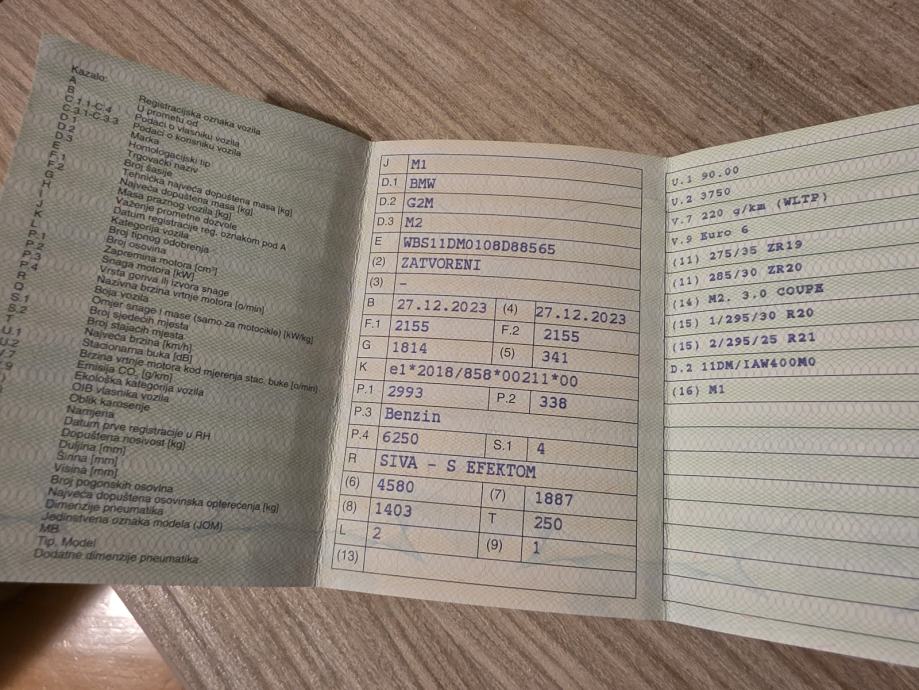 Kazalo:
A Registracijska oznaka vozila
B U prometu od
C.1.1-C.4 Podaci o vlasniku vozila
C.3.1-C.3.3 Podaci o korisniku vozila
D.1 Marka
D.2 Homologacijski tip
D.3 Trgovački naziv
E Broj šasije
F.1 Tehnička najveća dopuštena masa [kg]
F.2 Najveća dopuštena masa [kg]
G Masa praznog vozila [kg]
H Važenje prometne dozvole
I Datum registracije reg. oznakom pod A
J Kategorija vozila
K Broj tipnog odobrenja
L Broj osovina
P.1 Zapremina motora [cm³]
P.2 Snaga motora [kW]
P.3 Vrsta goriva ili izvora snage
P.4 Nazivna brzina vrtnje motora [o/min]
R Boja vozila
Q Omjer snage i mase (samo za motocikle) [kW/kg]
S.1 Broj sjedećih mjesta
S.2 Broj stajaćih mjesta
T Najveća brzina [km/h]
U.1 Stacionarna buka [dB]
U.2 Brzina vrtnje motora kod mjerenja stac. buke [o/min]
V.7 Emisija CO₂ [g/km]
Ekološka kategorija vozila
OIB vlasnika vozila
Oblik karoserije
Namjena
Datum prve registracije u RH
Dopuštena nosivost [kg]
Duljina [mm]
Širina [mm]
Visina [mm]
Broj pogonskih osovina
Najveća dopuštena osovinska opterećenja [kg]
Dimenzije pneumatika
Jedinstvena oznaka modela (JOM)
MB
Tip, Model
Dodatne dimenzije pneumatika
J M1
D.1 BMW
D.2 G2M
D.3 M2
E WBS11DM0108D88565
(2) ZATVORENI
(3) -
B 27.12.2023 (4) 27.12.2023
F.1 2155 F.2 2155
G 1814 (5) 341
K e1*2018/858*00211*00
P.1 2993 P.2 338
P.3 Benzin
P.4 6250 S.1 4
R SIVA - S EFEKTOM
(6) 4580 (7) 1887
(8) 1403 T 250
L 2 (9) 1
(13)
U.1 90.00
U.2 3750
V.7 220 g/km (WLTP)
V.9 Euro 6
(11) 275/35 ZR19
(11) 285/30 ZR20
(14) M2. 3.0 COUPE
(15) 1/295/30 R20
(15) 2/295/25 R21
D.2 11DM/IAW400M0
(16) M1